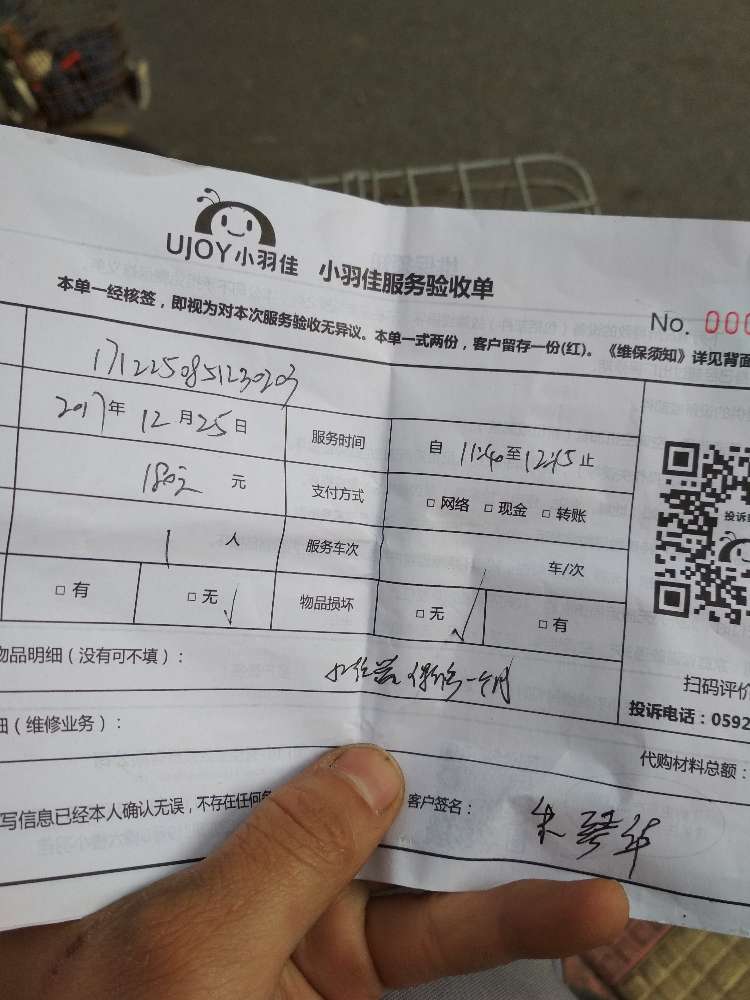 UJOY小羽佳 小羽佳服务验收单
本单一经核签，即视为对本次服务验收无异议。本单一式两份，客户留存一份(红)。《维保须知》详见背面
No. 000
1712250851230203
2017年 12月25日 服务时间 自 11:40至12:45止
180元 元 支付方式 □ 网络 □ 现金 □ 转账
1 人 服务车次 车/次
□ 有 □ 无 √ 物品损坏 □ 无 √ □ 有
投诉
物品明细（没有可不填）：
保修一个月
扫码评价
投诉电话：0592
细（维修业务）：
代购材料总额：
写信息已经本人确认无误，不存在任何
客户签名：